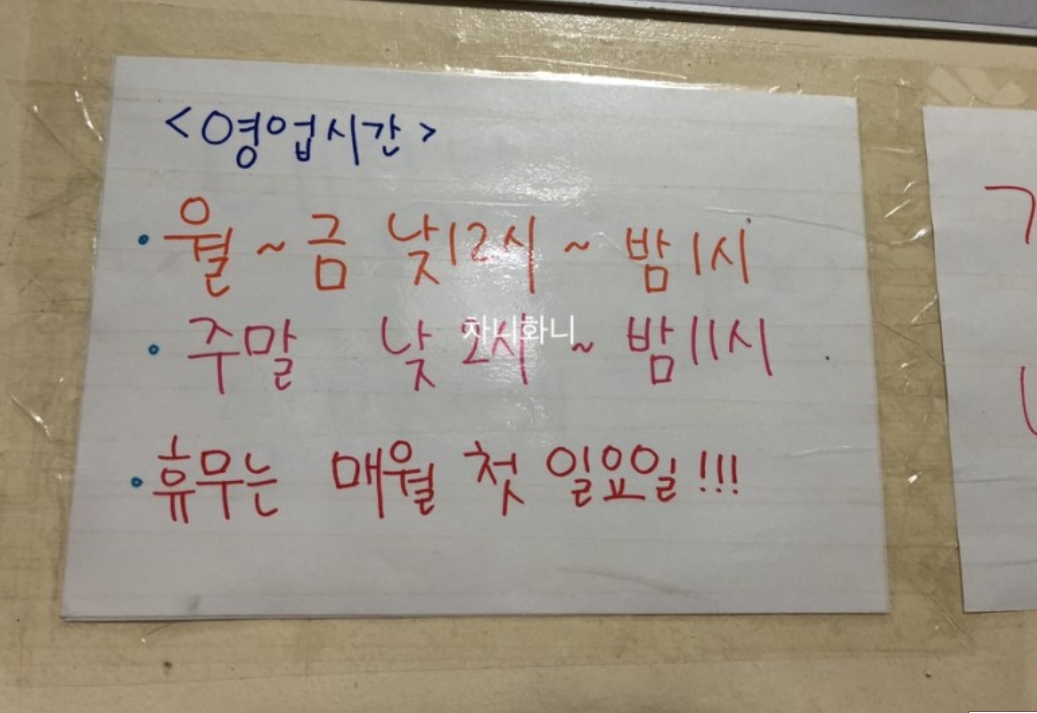 <영업시간>
• 월 ~ 금 낮12시 ~ 밤 1시
• 주말 낮 2시 ~ 밤 11시
차니화니
• 휴무는 매월 첫 일요일!!!